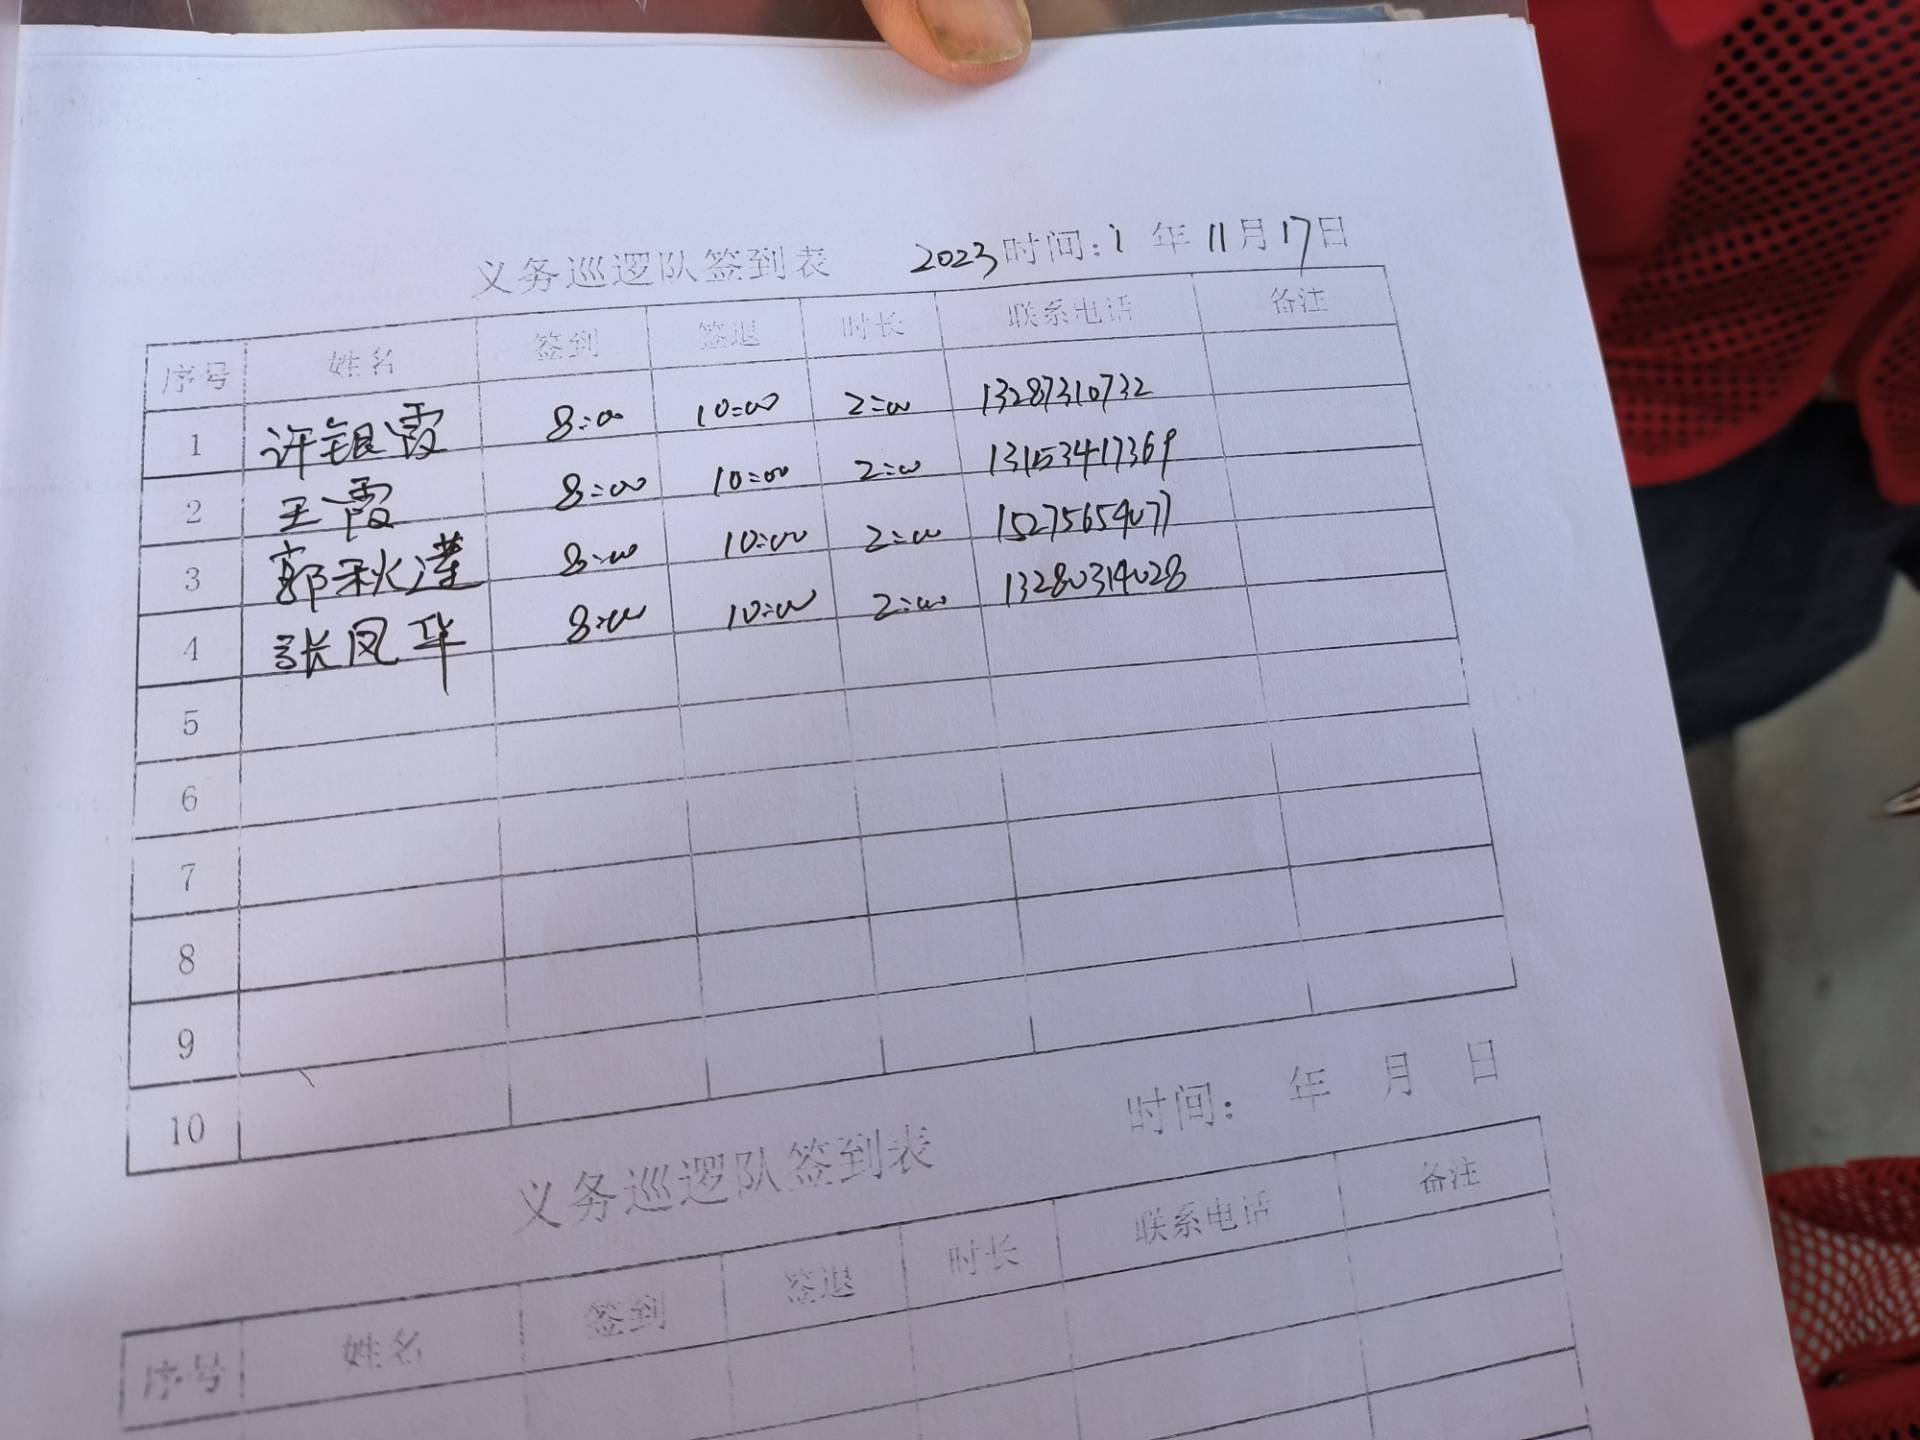 义务巡逻队签到表 2023时间:1 年 11月17日
序号 姓名 签到 签退 时长 联系电话 备注
1 许银霞 8:00 10:00 2:00 13287310732
2 王霞 8:00 10:00 2:00 13153417369
3 郭秋莲 8:00 10:00 2:00 15275654077
4 张凤华 8:00 10:00 2:00 13280314028
5
6
7
8
9
10
义务巡逻队签到表 时间: 年 月 日
序号 姓名 签到 签退 时长 联系电话 备注